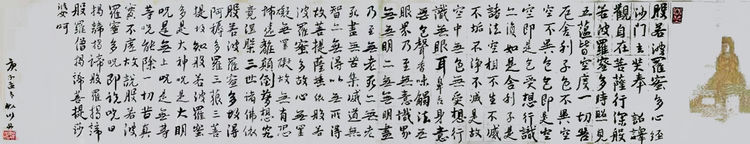 般若波羅蜜多心經
沙門玄奘奉 詔譯
觀自在菩薩行深般
若波羅蜜多時照見
五蘊皆空度一切苦
厄舍利子色不異空
空不異色色即是空
空即是色受想行識
亦復如是舍利子是
諸法空相不生不滅
不垢不淨不增不減是故
空中無色無受想行
識無眼耳鼻舌身意
無色聲香味觸法無
眼界乃至無意識界
無無明亦無無明盡
乃至無老死亦無老
死盡無苦集滅道無
智亦無得以無所得
故菩提薩埵依般若
波羅蜜多故心無罣
礙無罣礙故無有恐
怖遠離顛倒夢想究
竟涅槃三世諸佛依
般若波羅蜜多故得
阿耨多羅三藐三菩
提故知般若波羅蜜
多是大神咒是大明
咒是無上咒是無等
等咒能除一切苦真
實不虛故說般若波
羅蜜多咒即說咒曰
揭諦揭諦般羅揭諦
般羅僧揭諦菩提莎
婆呵
庚子